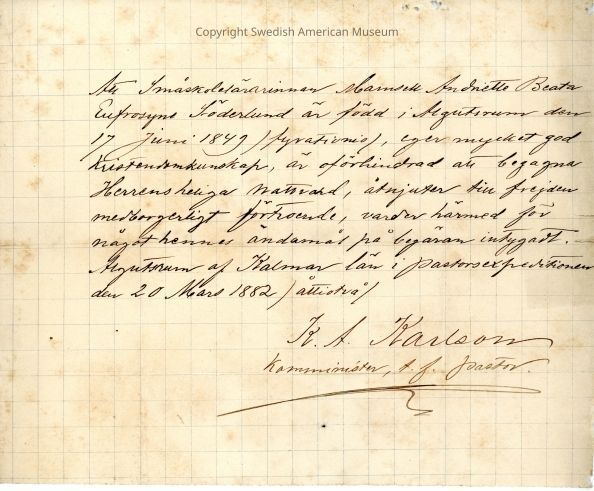 Copyright Swedish American Museum
Att Småskolelärarinnan Mamsell Andriette Beata
Eufrosyne Söderlund är född i Algutsrum den
17 Juni 1849 /fyrationio/, eger mycket god
kristendomskunskap, är oförhindrad att begagna
Herrens heliga nattvard, åtnjuter till frejden
medborgerligt förtroende, varder härmed för
något hennes ändamål på begäran intygadt.
Algutsrum af Kalmar län i pastorsexpeditionen
den 20 Mars 1882 /åttiotvå/
K. A. Karlson
Komminister, t. f. pastor.